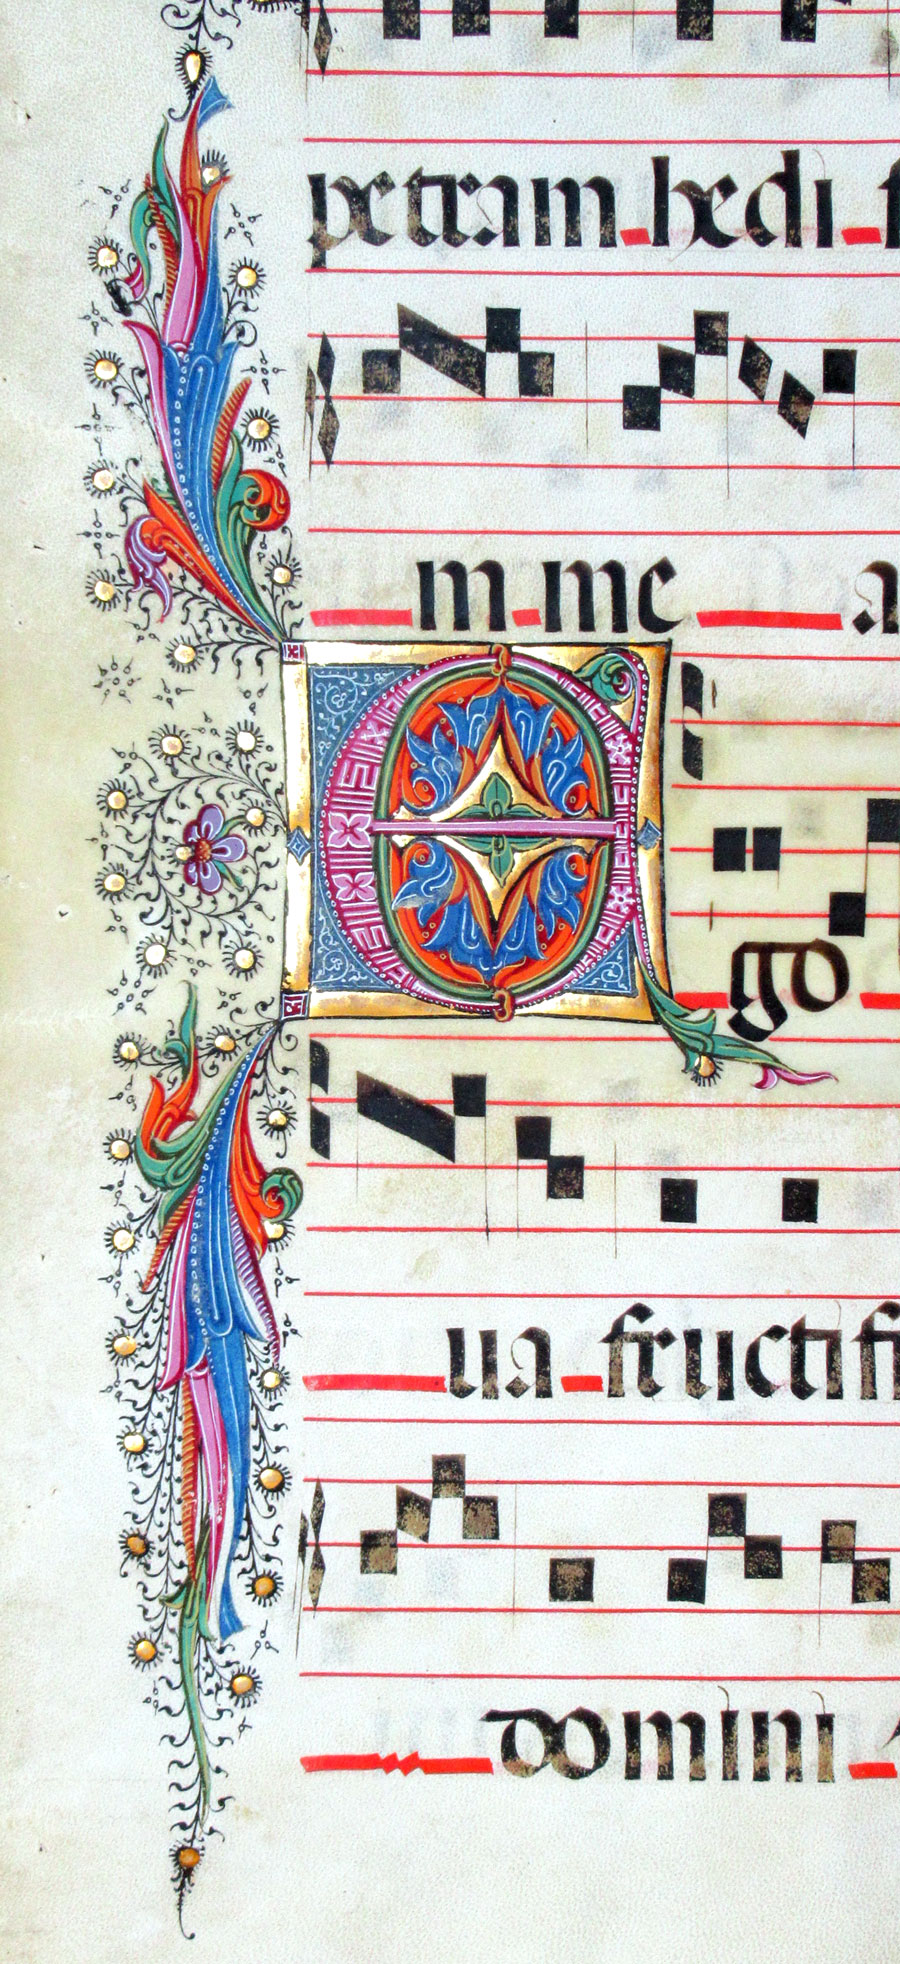 petram hedi f
m me a
E go
ua fructifi
domini